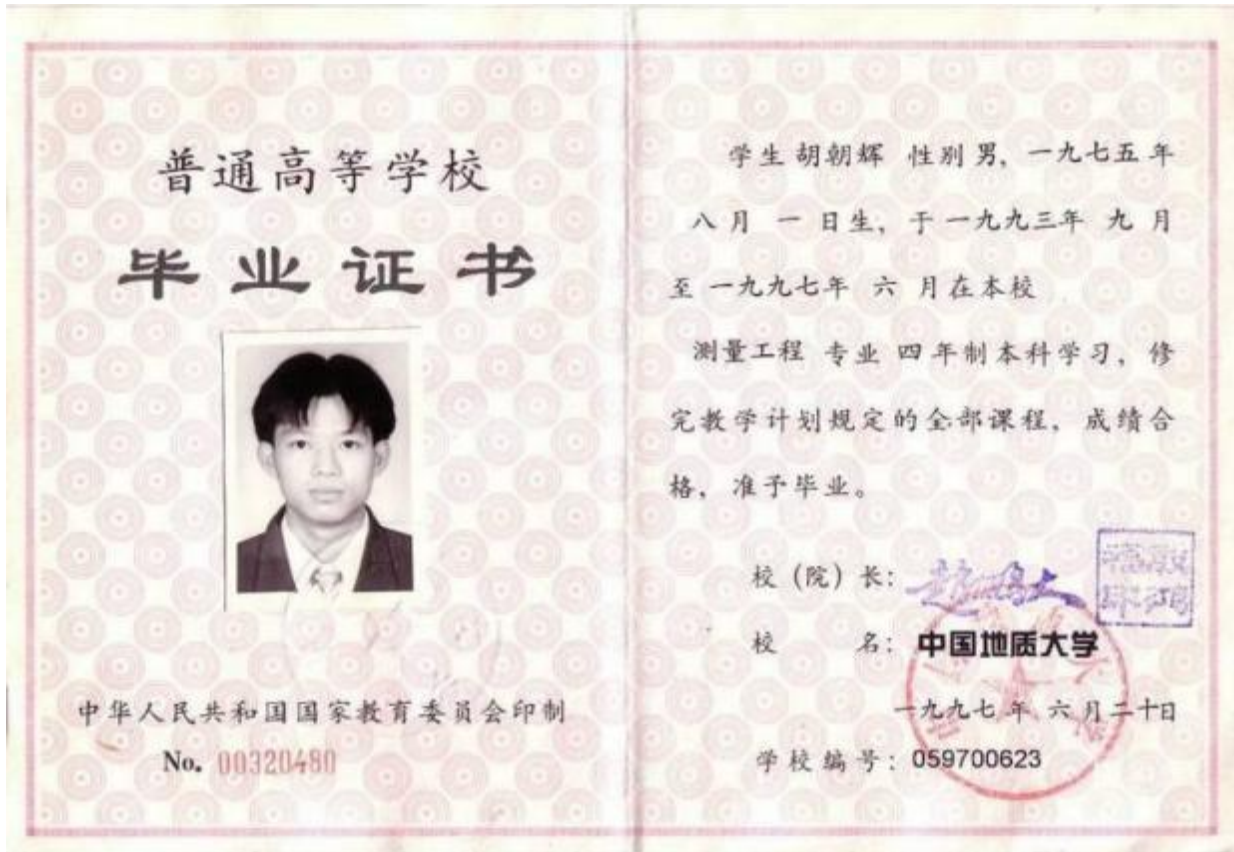 普通高等学校
毕业证书
中华人民共和国国家教育委员会印制
No. 00320480
学生 胡朝辉 性别 男，一九七五年
八月 一 日生，于一九九三年 九 月
至 一九九七年 六 月在本校
测量工程 专业 四 年制本科学习，修
完教学计划规定的全部课程，成绩合
格，准予毕业。
校（院）长：赵鹏大
校 名：中国地质大学
一九九七年 六月二十日
学校编号：059700623